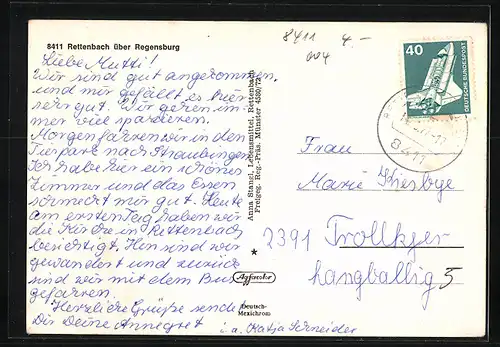 8411 Rettenbach über Regensburg
8411 4.-
004
Liebe Mutti!
Wir sind gut angekommen,
und mir gefällt es hier
sehr gut. Wir gehen im-
mer viel spazieren.
Morgen fahren wir in den
Tierpark nach Straubing.
Ich habe hier ein schönes
Zimmer und das Essen
schmeckt mir gut. Heute
am ersten Tag haben wir
die Kirche in Rettenbach
besichtigt. Hin sind wir
gewandert und zurück
sind wir mit dem Bus
gefahren.
Herzliche Grüße sendet
Dir Deine Annegret
i. a. Katja Schneider
Anna Stangl, Lebensmittel, Rettenbach
Freigeg. Reg.-Präs. Münster 4580/72
*
Agfacolor
Deutsch-
Mexichrom
40
DEUTSCHE BUNDESPOST
8411
Frau
Marie
2391 Trollkjer
langballig 5